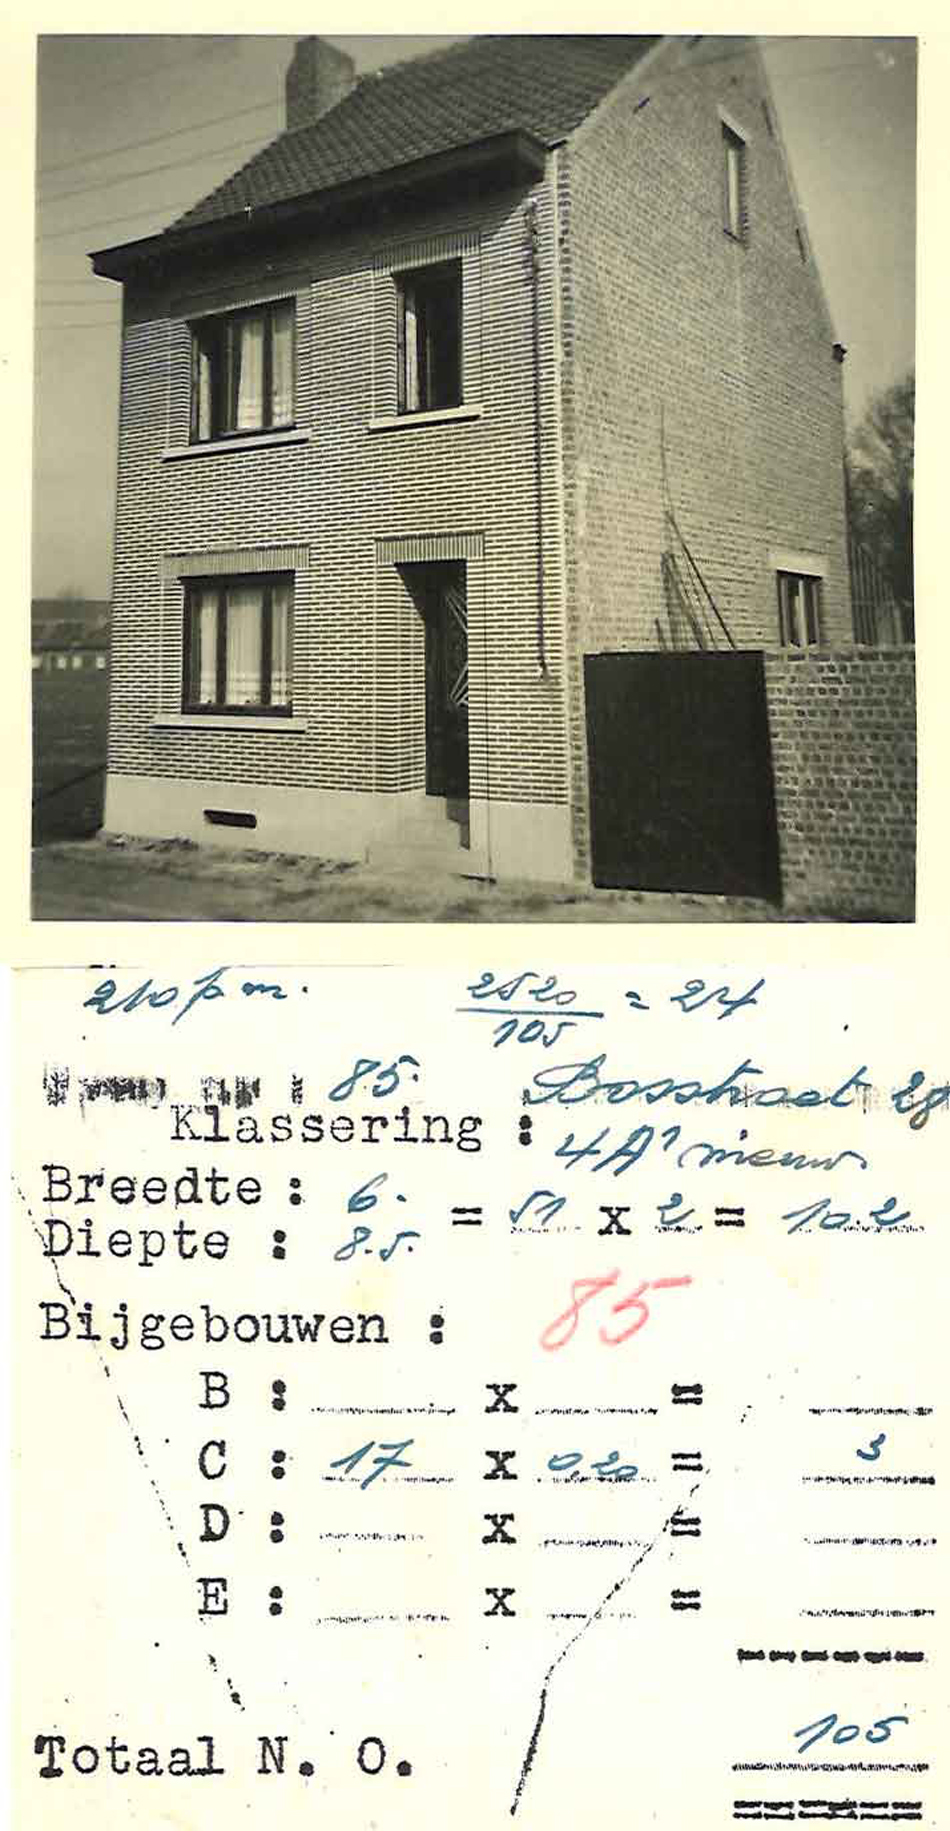 210 p m. 2520 / 105 = 24
85. Bosstraat 28
Klassering : 4A1 nieuw
Breedte : 6. = 51 x 2 = 102
Diepte : 8.5.
Bijgebouwen : 85
B : x =
C : 17 x 0,20 = 3
D : x =
E : x =
105
Totaal N. O.